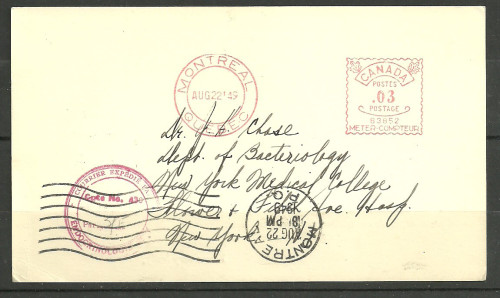 MONTREAL
AUG 22 '49
QUEBEC
CANADA
POSTES
.03
POSTAGE
69652
METER-COMPTEUR
Dr. Chase
Dept. of Bacteriology
New York Medical College
Flower & Fifth Ave. Hosp.
New York
COURRIER EXPÉDIÉ
Code No.
MONTREAL
P.Q.
PM
AUG 22
1949